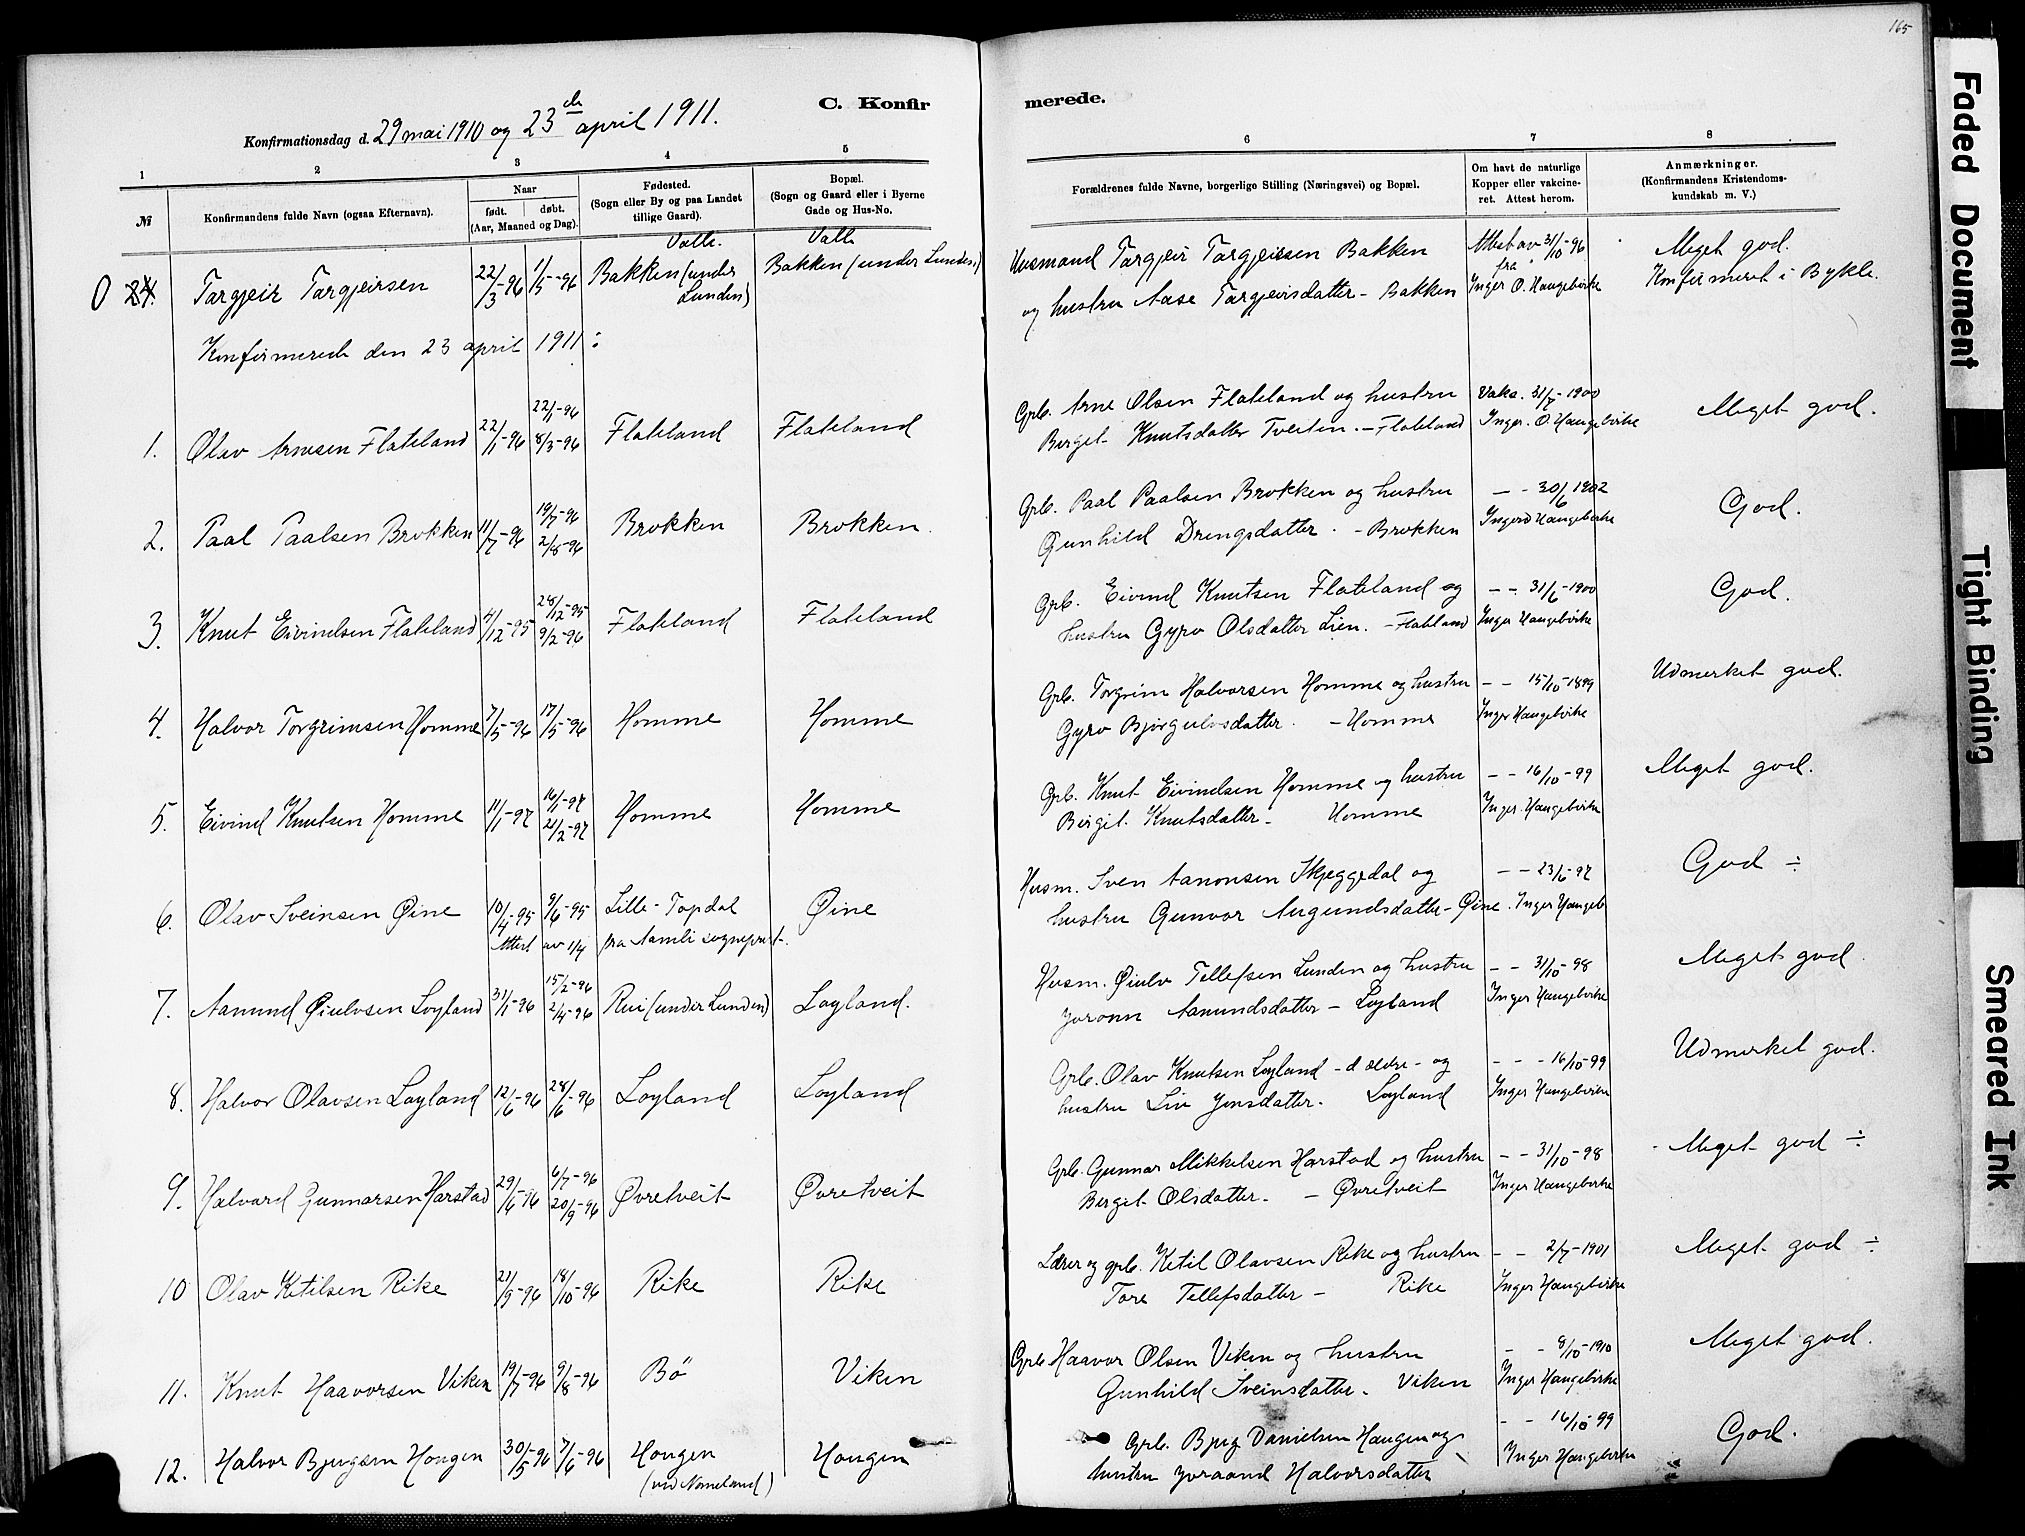 165
C. Konfirmerede.
Konfirmationsdag d. 29 mai 1910 og 23de april 1911.
1 2 3 4 5 6 7 8
№
Konfirmandens fulde Navn (ogsaa Efternavn).
Naar
født. døbt.
(Aar, Maaned og Dag).
Fødested.
(Sogn eller By og paa Landet
tillige Gaard).
Bopæl.
(Sogn og Gaard eller i Byerne
Gade og Hus-No.
Forældrenes fulde Navne, borgerlige Stilling (Næringsvei) og Bopæl.
Om havt de naturlige
Kopper eller vakcine-
ret. Attest herom.
Anmærkninger.
(Konfirmandens Kristendoms-
kundskab m. V.)
0 24. Targjeir Targjeirsen 22/3-96 1/5-96 Valle. Bakken (under Lunden) Valle Bakken (under Lunden)
Husmand Targjeir Targjeirsen Bakken
og hustru Aase Targjeirsdatter - Bakken
Attest av 31/10-96
fra
Inger O. Haugebirke
Meget god.
Konfirmeret i Bykle.
Konfirmerede den 23 april 1911:
1. Olav Arnesen Flateland 22/1-96 22/1-96 8/3-96 Flateland Flateland
Grb. Arne Olsen Flateland og hustru
Berget Knutsdatter Tveiten. - Flateland
Vaks. 31/7-1900
Inger. O. Haugebirke
Meget god.
2. Paal Paalsen Brokken 11/7-96 19/7-96 2/8-96 Brokken Brokken.
Grb. Paal Paalsen Brokken og hustru
Gunhild Drengsdatter. - Brokken
- - 30/6 1902
Inger O Haugebirke
God.
3. Knut Eivindsen Flateland 4/12-95 28/12-95 9/2-96 Flateland Flateland
Grb. Eivind Knutsen Flateland og
hustru Gyro Olsdatter Lien. - Flateland
- - 31/6-1900
Inger Haugebirke
God.
4. Halvor Torgrimsen Homme 7/5-96 17/5-96 Homme Homme
Grb. Torgrim Halvorsen Homme og hustru
Gyro Bjørgulvsdatter. - Homme
- - 15/10-1899
Inger Haugebirke
Udmerket god.
5. Eivind Knutsen Homme 11/1-97 16/1-97 21/2-97 Homme Homme
Grb. Knut Eivindsen Homme og hustru
Birgit. Knutsdatter - Homme
- - 16/10-99
Inger. Haugebirke
Meget god.
6. Olav Sveinsen Øine 10/4-95 9/6-95 Lille-Topdal Øine
Attest av 1/4 fra Aamli sogneprest.
Husm. Sven Aanonsen Skjeggedal og
hustru Gunvor Augundsdatter - Øine.
- - 23/6-97
Inger Haugeb
God ÷
7. Aamund Øiulvsen Løyland 31/1-96 15/2-96 2/4-96 Rui (under Lunden) Løyland.
Husm. Øiulv Tellefsen Lunden og hustru
Joronn Aamundsdatter - Løyland
- - 31/10-98
Inger Haugebirke
Meget god
8. Halvor Olavsen Løyland 12/6-96 28/6-96 Løyland Løyland
Grb. Olav Knutsen Løyland - d ældre - og
hustru Liv Jonsdatter. Løyland
- - - 16/10-99
Inger Haugebirke
Udmerket god.
9. Halvard Gunnarsen Harstad 29/6-96 6/7-96 20/9-96 Øvretveit Øvretveit
Grb. Gunnar Mikkelsen Harstad og hustru
Berget Olsdatter. - Øvretveit
- - 31/10-98
Inger Haugebirke
Meget god ÷
10 Olav Ketilsen Rike 21/9-96 18/10-96 Rike Rike
Lærer og grb. Ketil Olavsen Rike og hustru
Tore Tellefsdatter - Rike
- - 2/7-1901
Inger Haugebirke
Meget god ÷
11. Knut Haavorsen Viken 19/7-96 9/8-96 Bø Viken
Grb Haavor Olsen Viken og hustru
Gunhild Sveinsdatter. Viken
- - 8/10-1910
Inger Haugebirke
Meget god.
12. Halvor Bjugsen Hougen 30/5-96 7/6-96 Hougen (ved Nomeland) Hougen
Grb. Bjug Danielsen Haugen og
hustru Joraand Halvorsdatter
- - 16/10-99
Inger Haugebirke
God.
Faded Document
Tight Binding
Smeared Ink